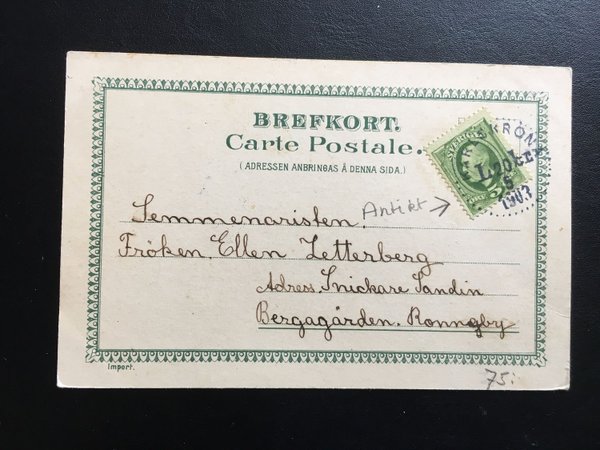 BREFKORT.
Carte Postale.
(ADRESSEN ANBRINGAS Å DENNA SIDA.)
SVERIGE
KARLSKRONA
Lnbtr
1903
Antikt
Semmenaristen.
Fröken. Ellen Zetterberg
Adress. Snickare Sandin
Bergagården. Ronngby
Import.
75: